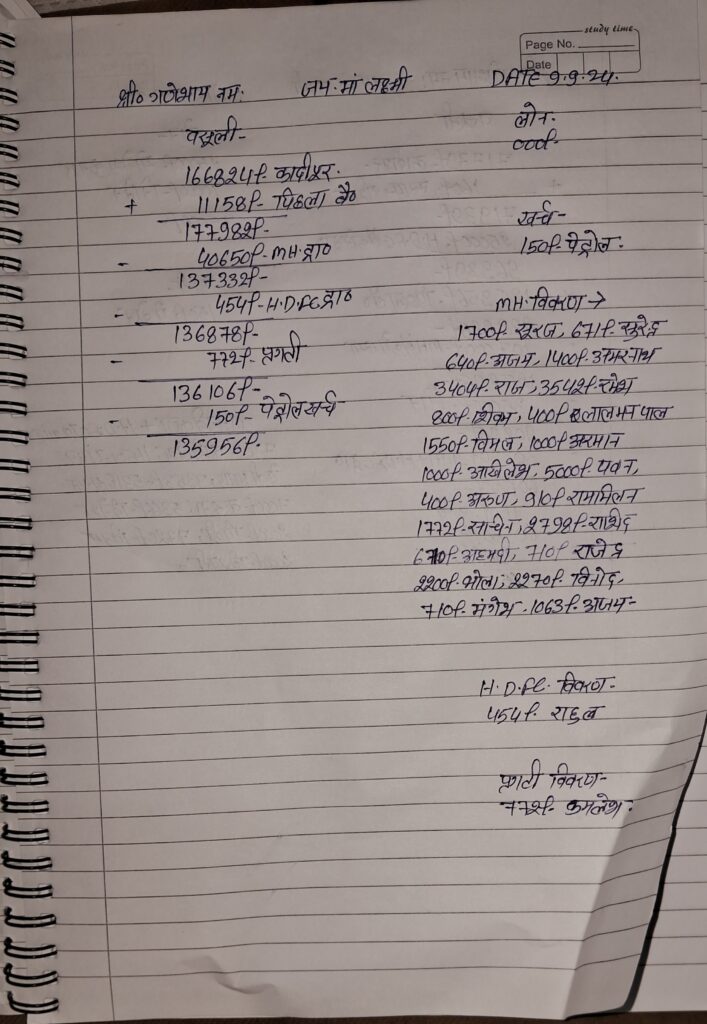 study time
Page No.
Date
श्री० गणेशाय नमः जय मां लक्ष्मी DATE 9.9.24.
वसूली-
166824/- कादीपुर.
+ 11158/- पिछला बै०
177982/-
- 40650/- MH. द्वा०
137332/-
- 454/- H.D.F.C. द्वा०
136878/-
- 772/- प्रगती
136106/-
- 150/- पेट्रोल खर्च
135956/-
लोन.
000/-
खर्च-
150/- पेट्रोल.
MH. विवरण →
1700/- सूरज, 671/- सुरेन्द्र
640/- अजय, 1400/- अमरनाथ
3404/- राज, 3542/- रमेश
800/- शिवम, 400/- लालमन पाल
1550/- विमल, 1000/- अरमान
1000/- अखिलेश, 5000/- पवन,
400/- अरुण, 910/- राममिलन
1772/- सचिन, 2798/- राशिद
670/- अहमदी, 710/- राजेन्द्र
2200/- भोला, 2270/- विनोद,
710/- मंगेश. 1063/- अजय-
H.D.F.C. विवरण-
454/- राहुल
प्रगती विवरण-
772/- कमलेश.